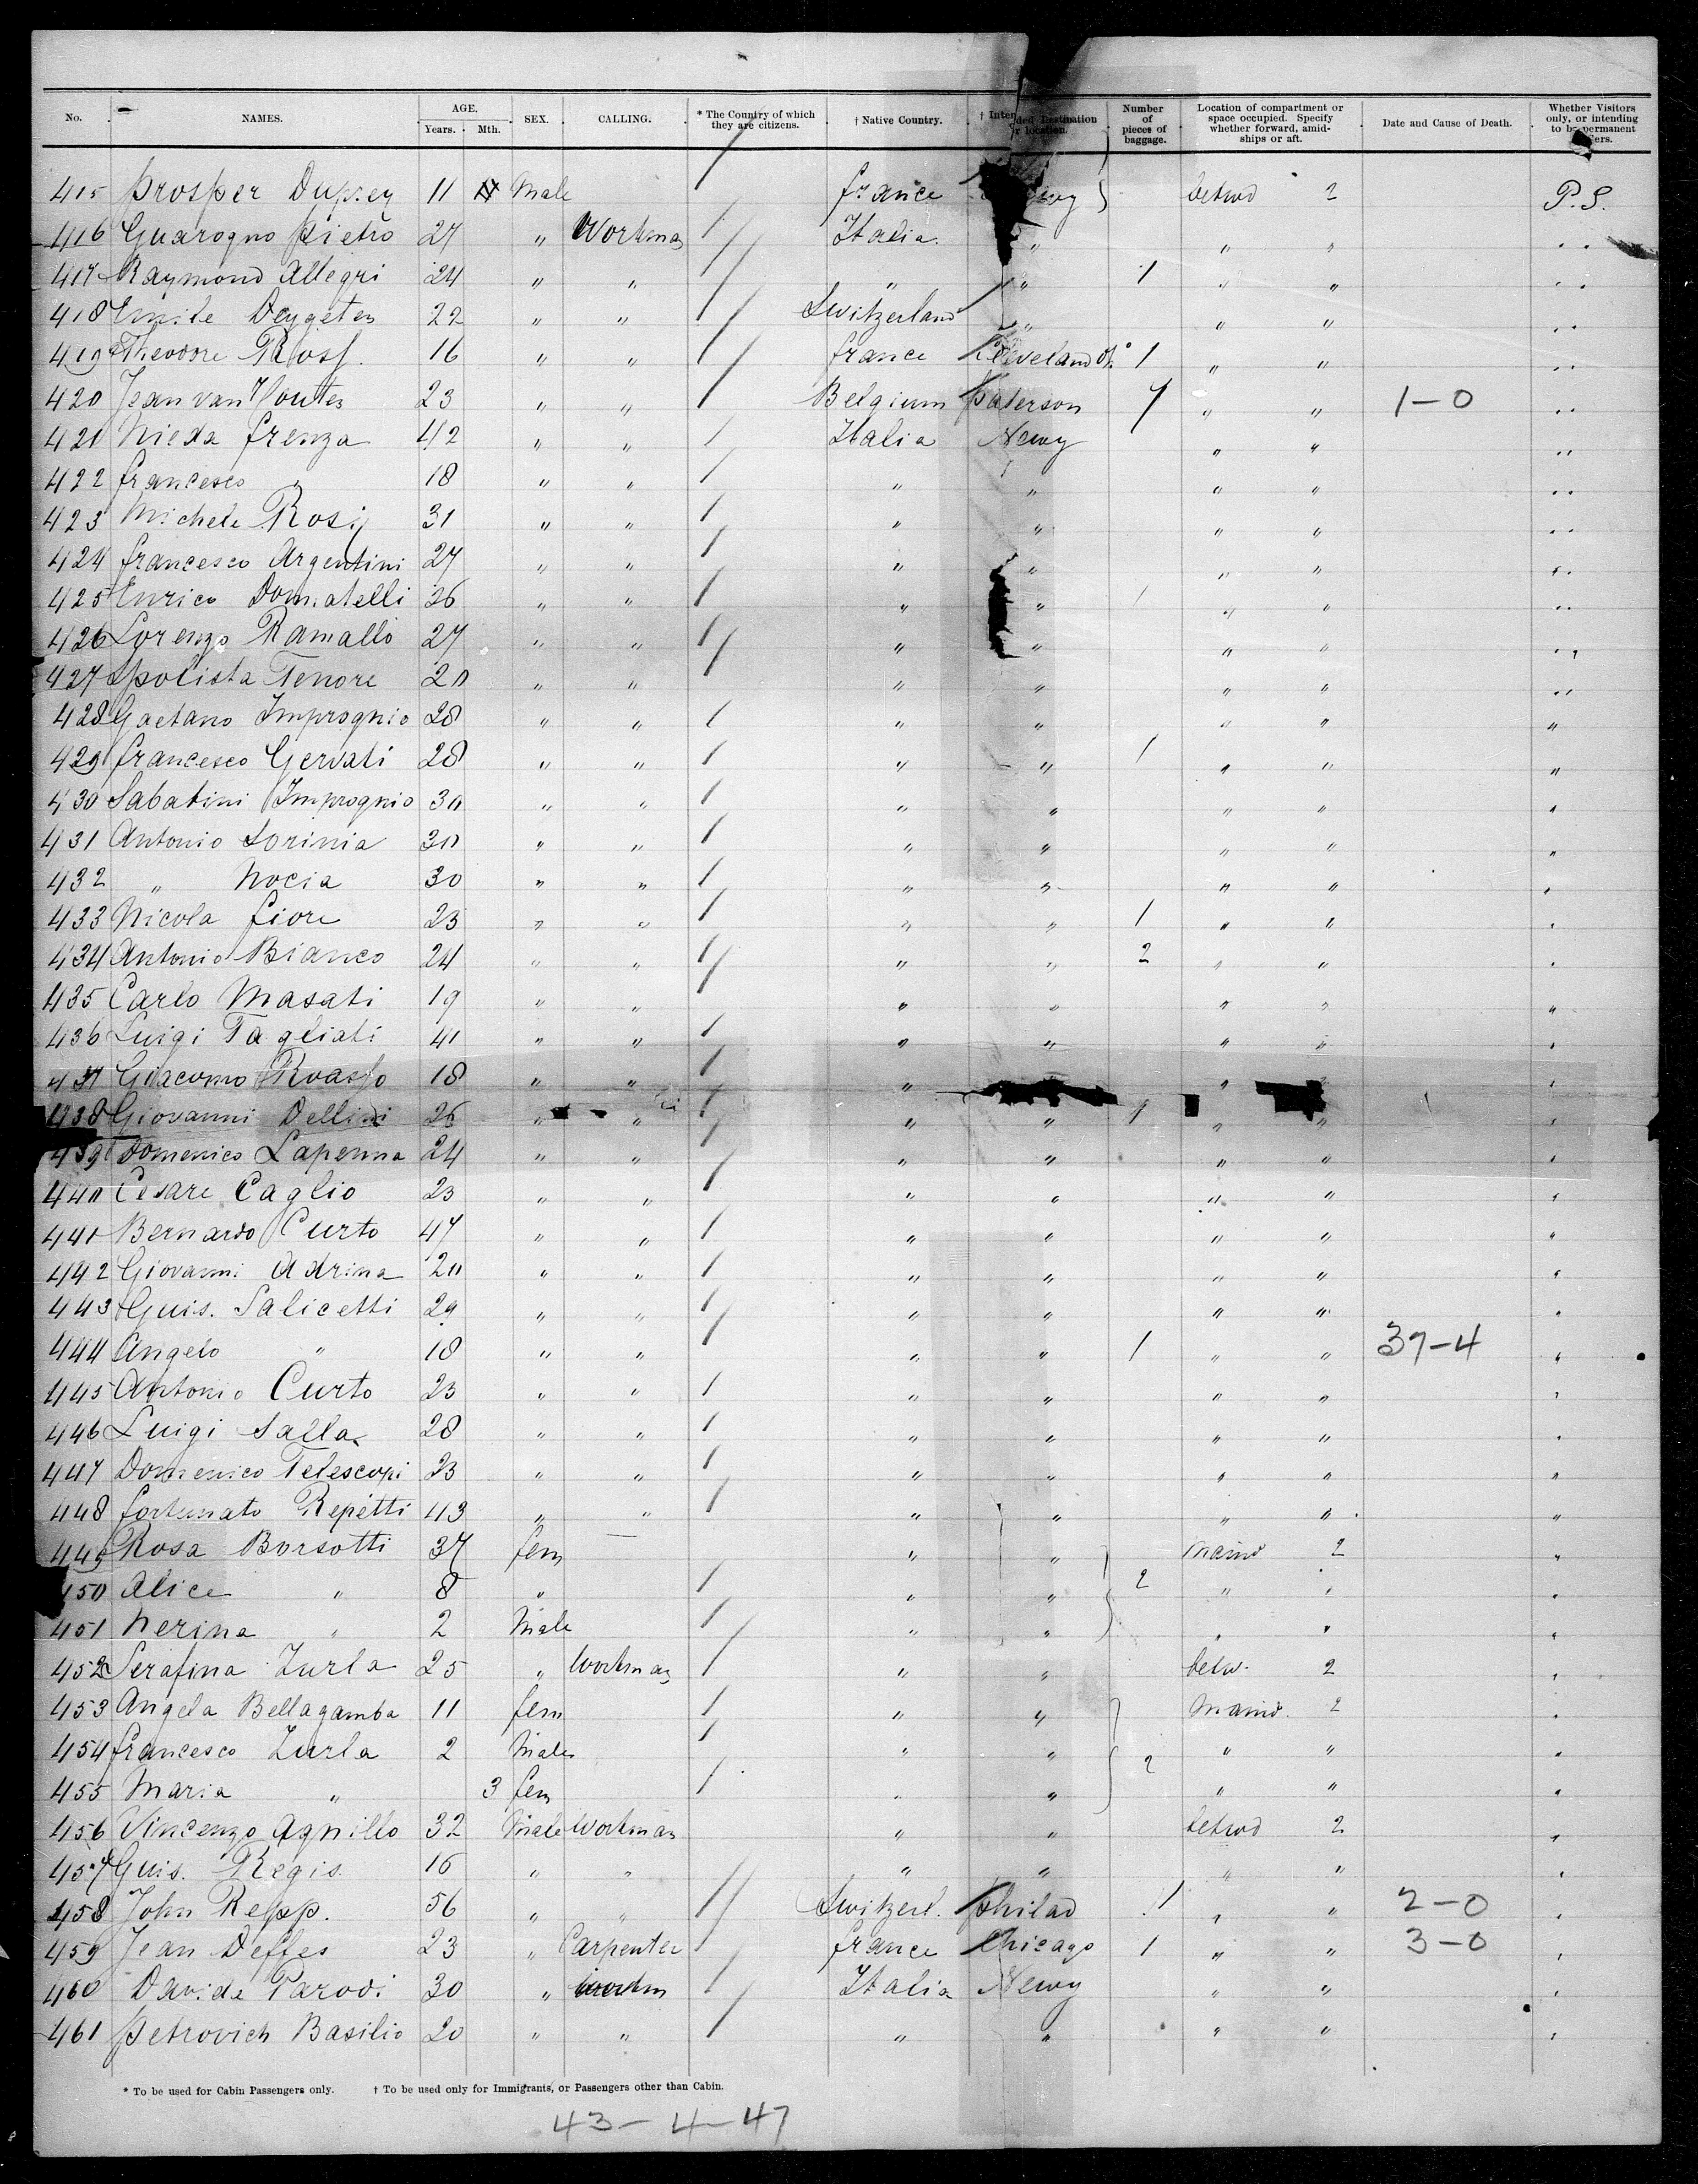 No. NAMES. AGE. Years. Mth. SEX. CALLING. * The Country of which they are citizens. † Native Country. † Intended Destination or location. Number of pieces of baggage. Location of compartment or space occupied. Specify whether forward, amidships or aft. Date and Cause of Death. Whether Visitors only, or intending to be permanent
415 Prosper 11 Male france betwd 2 P.S.
416 Guarogno Pietro 27 " Workman Italia " " " " "
417 Raymond Allegri 24 " " " " 1 " " " "
418 Emile Deygeten 22 " " Switzerland " " " " "
419 Theodore Ross 16 " " france Cleveland Oh. 1 " " " "
420 Jean van Houten 23 " " Belgium Paterson 7 " " 1-0 " "
421 Nieda frenza 42 " " Italia Newy " " " "
422 francesco " 18 " " " " " " " "
423 Michele Rosi 31 " " " " " " " "
424 francesco Argentini 27 " " " " " " " "
425 Enrico Domatelli 36 " " " " 1 " " " "
426 Lorenzo Ramallo 27 " " " " " " " "
427 Ipolista Tenore 20 " " " " " " " "
428 Gaetano Imprognio 28 " " " " " " "
429 francesco Gervati 28 " " " " 1 " " "
430 Sabatini Imprognio 30 " " " " " " "
431 Antonio Sorinia 30 " " " " " " "
432 " Nocia 30 " " " " " " "
433 Nicola fiore 23 " " " " 1 " " "
434 Antonio Bianco 24 " " " " 2 " " "
435 Carlo Masati 19 " " " " " " "
436 Luigi Tagliati 41 " " " " " " "
437 Giacomo Roasso 18 " " " " "
438 Giovanni Dellini 26 " " " " 1 " " "
439 Domenico Lapenna 24 " " " " " " "
440 Cesare Caglio 23 " " " " " " "
441 Bernardo Curto 47 " " " " " " "
442 Giovanni Adrina 20 " " " " " " "
443 Guis. Salicetti 29 " " " " " " "
444 Angelo " 18 " " " " 1 " " 37-4 "
445 Antonio Curto 23 " " " " " " "
446 Luigi Salla 28 " " " " " " "
447 Domenico Telescopi 23 " " " " " " "
448 fortunato Repetti 43 " " " " " " "
449 Rosa Borsotti 37 fem — " " maind 2 "
450 Alice " 8 " " " 2 " " "
451 Nerina " 2 Male " " " " "
452 Serafina Zurla 25 " Workman " " betw. 2 "
453 Angela Bellagamba 11 fem " " maind. 2 "
454 francesco Zurla 2 Male " " 2 " " "
455 Maria " 3 fem " " " " "
456 Vincenzo Agnillo 32 Male Workman " " betwd 2 "
457 Guis. Regis. 16 " " " " " " "
458 John Repp. 56 " " Switzerl. Philad 1 " " 2-0 "
459 Jean Deffes 23 " Carpenter france Chicago 1 " " 3-0 "
460 Davide Parodi 30 " Workm Italia Newy " " "
461 Petrovich Basilio 20 " " " " " " "
* To be used for Cabin Passengers only. † To be used only for Immigrants, or Passengers other than Cabin.
43-4-47